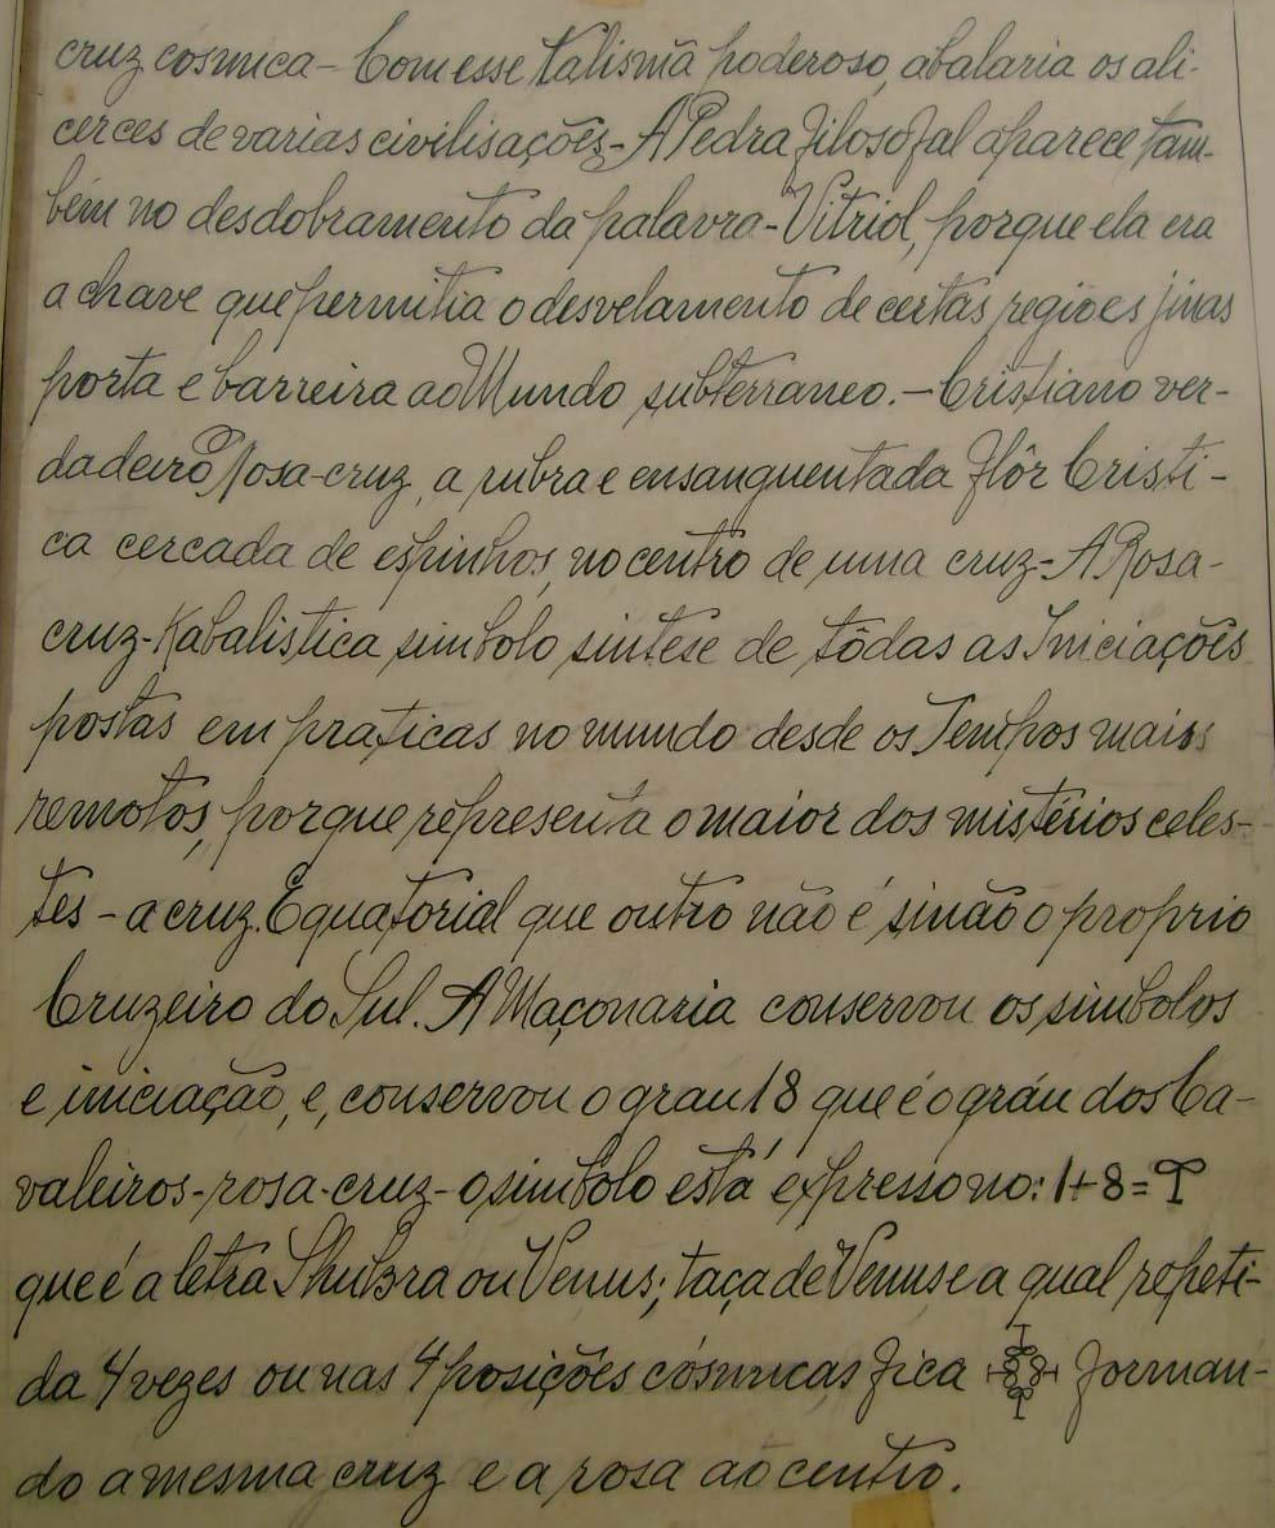 cruz cosmica - Com esse talismã poderoso, abalaria os ali-
cerces de varias civilisações - A Pedra filosofal aparece tam-
bém no desdobramento da palavra - Vitriol, porque ela era
a chave que permitia o desvelamento de certas regiões jinas
porta e barreira ao Mundo subterraneo. - Cristiano ver-
dadeiro Rosa-cruz, a rubra e ensanguentada flôr Cristi-
ca cercada de espinhos, no centro de uma cruz - A Rosa-
cruz - Kabalistica simbolo sintese de tôdas as Iniciações
postas em praticas no mundo desde os Tempos mais
remotos, porque representa o maior dos mistérios celes-
tes - a cruz. Equatorial que outro não é sinão o proprio
Cruzeiro do Sul. A Maçonaria conservou os simbolos
e iniciação, e, conservou o grau 18 que é o gráu dos Ca-
valeiros - rosa-cruz - o simbolo está expresso no: 1+8=
que é a letra Shukra ou Venus; taça de Venus e a qual repeti-
da 4 vezes ou nas 4 posições cósmicas fica forman-
do a mesma cruz e a rosa ao centro.